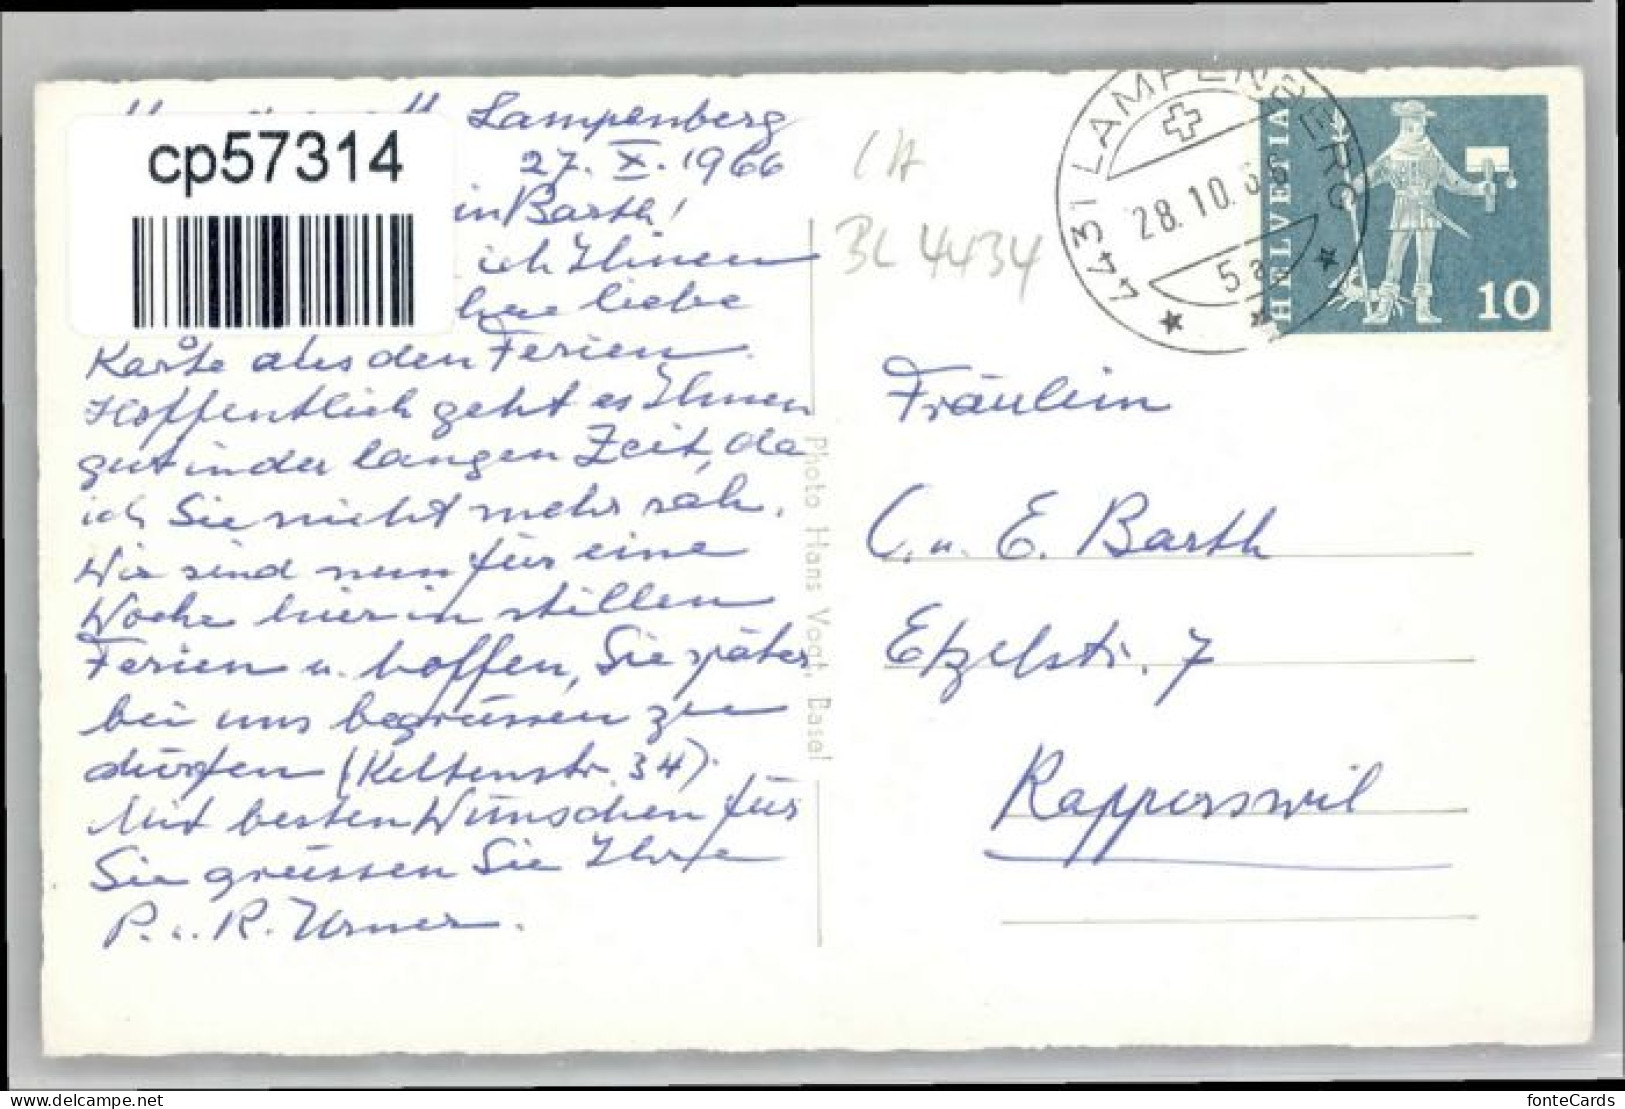 Lampenberg
27. X. 1966
cp57314
in Barth!
ich Ihnen
liebe
Karte aus den Ferien.
Hoffentlich geht es Ihnen
gut in der langen Zeit, da
ich Sie nicht mehr sah.
Wir sind nun für eine
Woche hier in stillen
Ferien u. hoffen, Sie später
bei uns begrüssen zu
dürfen (Keltenstr. 34).
Mit besten Wünschen für
Sie grüssen Sie Ihre
P. u. R. Urner.
Photo Hans Vogt, Basel
CH
BL 4434
4431 LAMPENBERG
28.10.66
5a
HELVETIA
10
Fräulein
C. u. E. Barth
Etzelstr. 7
Rapperswil
www.delcampe.net
fonteCards